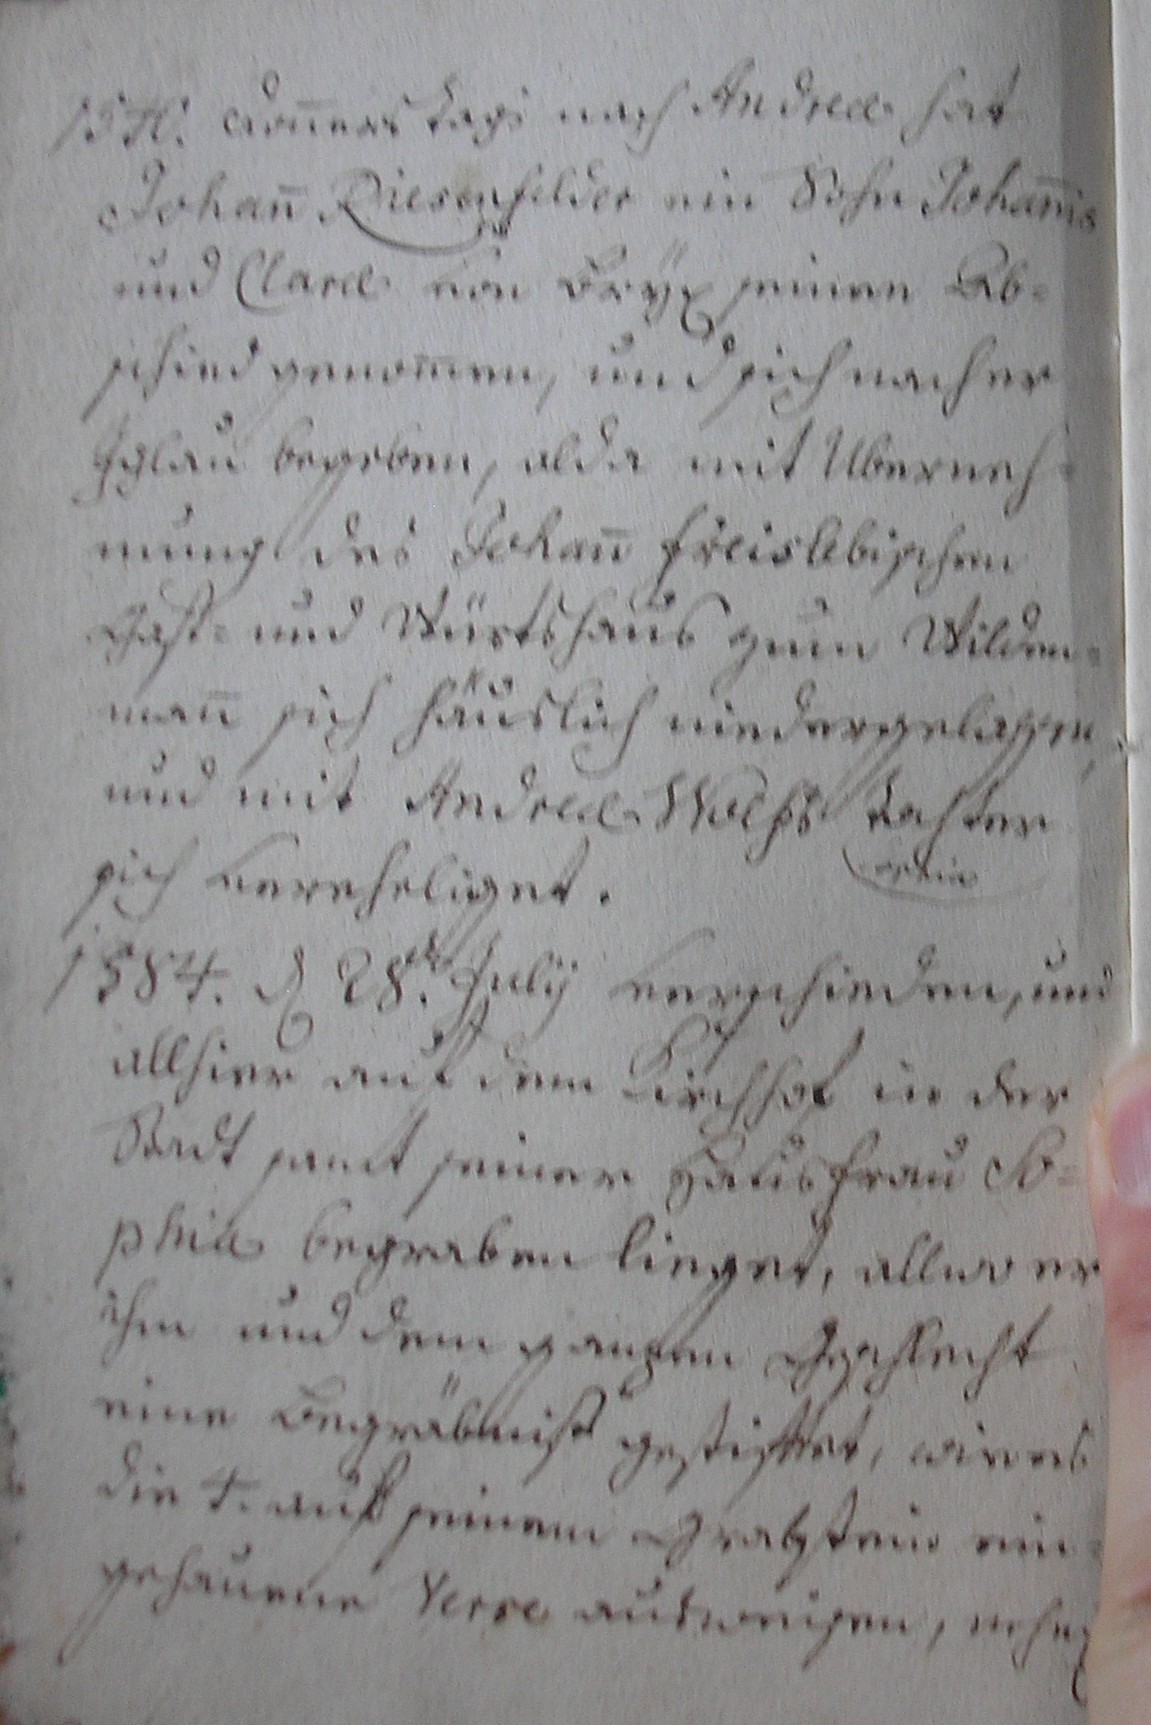 Donnerstags nach Andreæ hat
Johañ Riesenfelder ein Sohn Johañis
und Claræ von Brüx seinen Ab-
schied genom̄en, und sich nacher
Iglau begeben, alda mit Uberneh-
mung des Johañ Freislebischen
Gast- und Würtshaus zum Wilden-
mañ sich häuslich niedergelassen,
und mit Andreæ Wolfs tochter
sich vereheliget.
1584. d 28.t July verschieden, und
allhier auf dem Kirchhof in der
Stadt samt seiner Hausfrau So-
phia begraben lieget, allwo er
ihm und dem ganzen Geschlecht
eine Begräbniß gestiftet, wie es
die 4. auf seinem Grabstein ein-
gehauene Verse ausweisen,